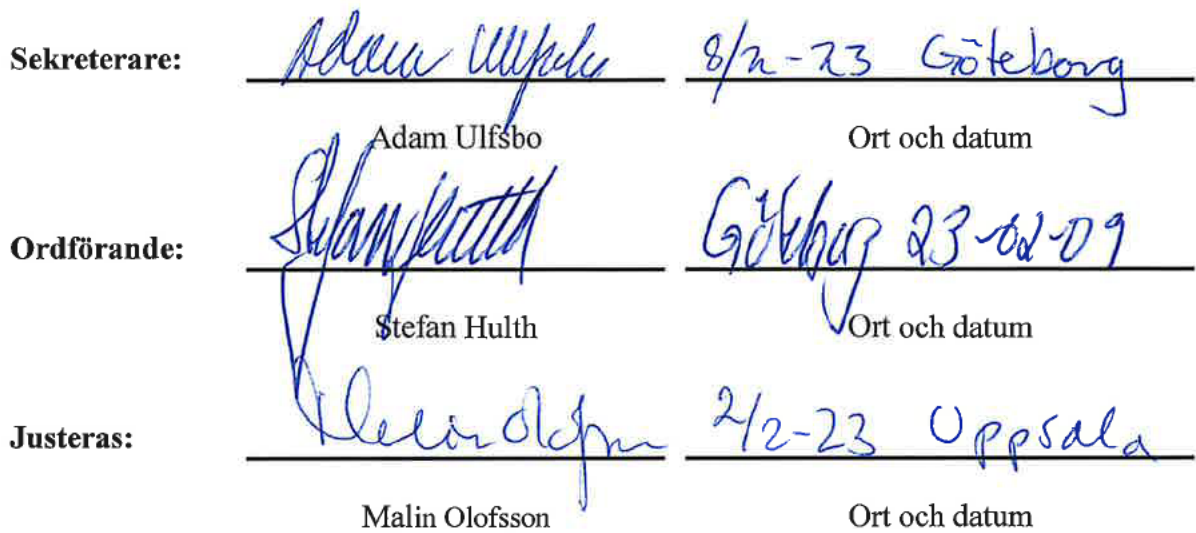 Sekreterare: Adam Ulfsbo 8/2-23 Göteborg
Adam Ulfsbo Ort och datum
Ordförande: Stefan Hulth Göteborg 23-02-09
Stefan Hulth Ort och datum
Justeras: Malin Olofsson 2/2-23 Uppsala
Malin Olofsson Ort och datum